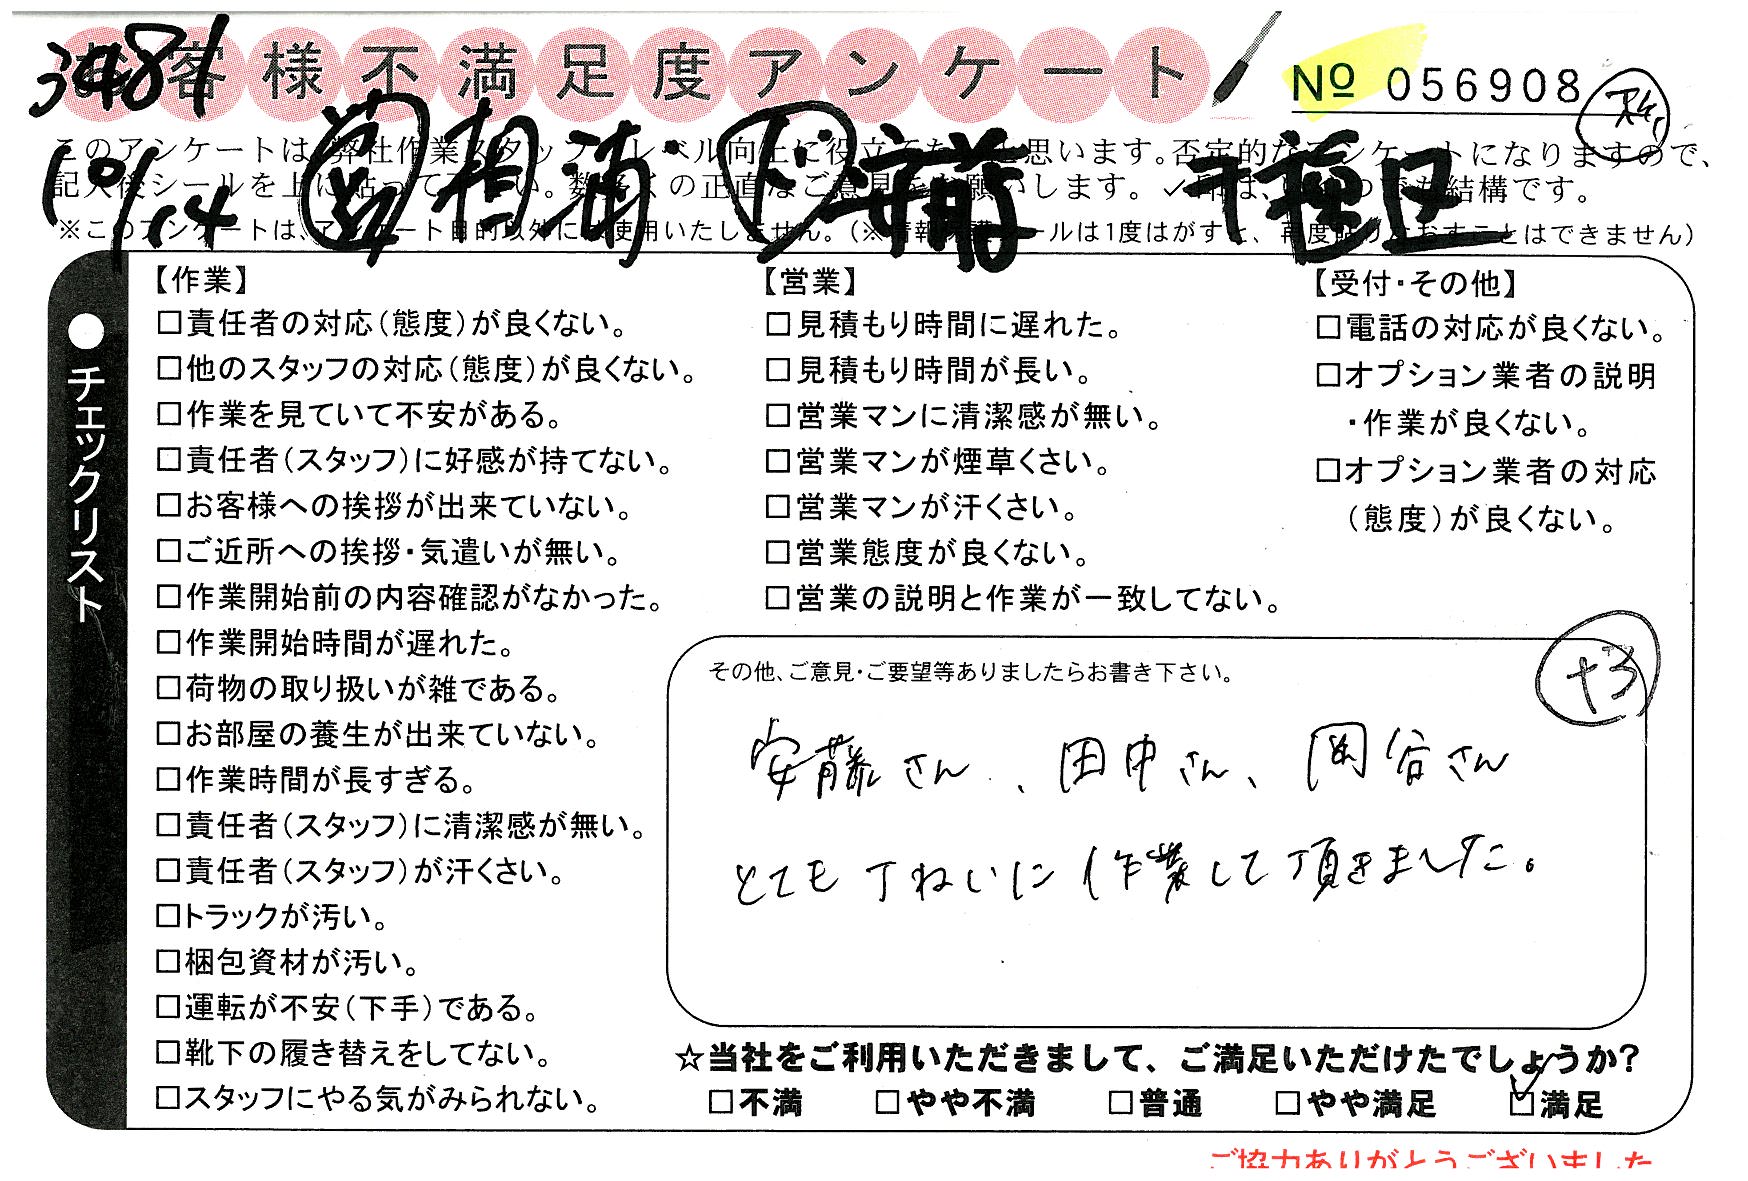 3481
お客様不満足度アンケート
No 056908
10/14 営 相浦 ド 安藤 千種区
このアンケートは、弊社作業スタッフのレベル向上に役立てたいと思います。否定的なアンケートになりますので、
記入後シールを上に貼って下さい。数多くの正直なご意見をお願いします。✓印は、いくつでも結構です。
※このアンケートは、アンケート目的以外には使用いたしません。(※情報保護シールは1度はがすと、再度貼りなおすことはできません)
●チェックリスト
【作業】
□責任者の対応(態度)が良くない。
□他のスタッフの対応(態度)が良くない。
□作業を見ていて不安がある。
□責任者(スタッフ)に好感が持てない。
□お客様への挨拶が出来ていない。
□ご近所への挨拶・気遣いが無い。
□作業開始前の内容確認がなかった。
□作業開始時間が遅れた。
□荷物の取り扱いが雑である。
□お部屋の養生が出来ていない。
□作業時間が長すぎる。
□責任者(スタッフ)に清潔感が無い。
□責任者(スタッフ)が汗くさい。
□トラックが汚い。
□梱包資材が汚い。
□運転が不安(下手)である。
□靴下の履き替えをしてない。
□スタッフにやる気がみられない。
【営業】
□見積もり時間に遅れた。
□見積もり時間が長い。
□営業マンに清潔感が無い。
□営業マンが煙草くさい。
□営業マンが汗くさい。
□営業態度が良くない。
□営業の説明と作業が一致してない。
【受付・その他】
□電話の対応が良くない。
□オプション業者の説明
・作業が良くない。
□オプション業者の対応
(態度)が良くない。
その他、ご意見・ご要望等ありましたらお書き下さい。
+3
安藤さん、田中さん、岡谷さん
とても丁ねいに作業して頂きました。
☆当社をご利用いただきまして、ご満足いただけたでしょうか?
□不満 □やや不満 □普通 □やや満足 ☑満足
ご協力ありがとうございました